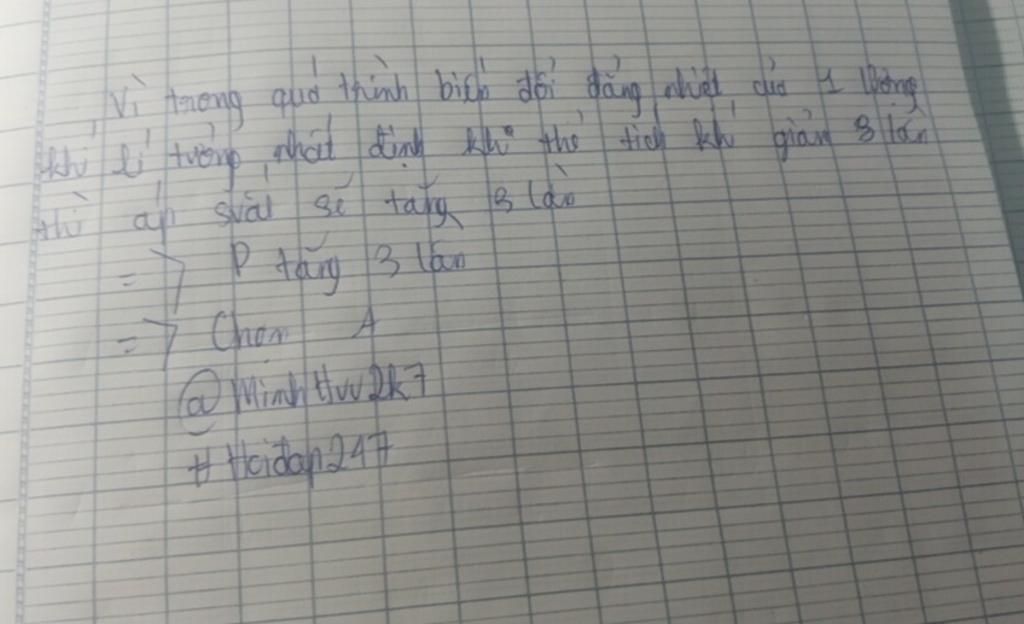 Vì trong quá trình biến đổi đẳng nhiệt của 1 lượng
khí lí tưởng nhất định khi thể tích khí giảm 3 lần
thì áp suất sẽ tăng 3 lần
=> P tăng 3 lần
=> Chọn A
@MinhHuu2k7
#Hoidap247